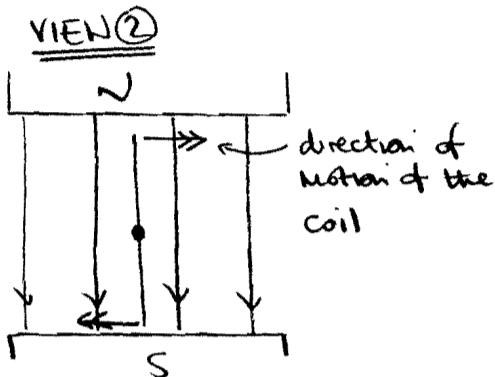 VIEW ②
N
direction of
motion of the
coil
S